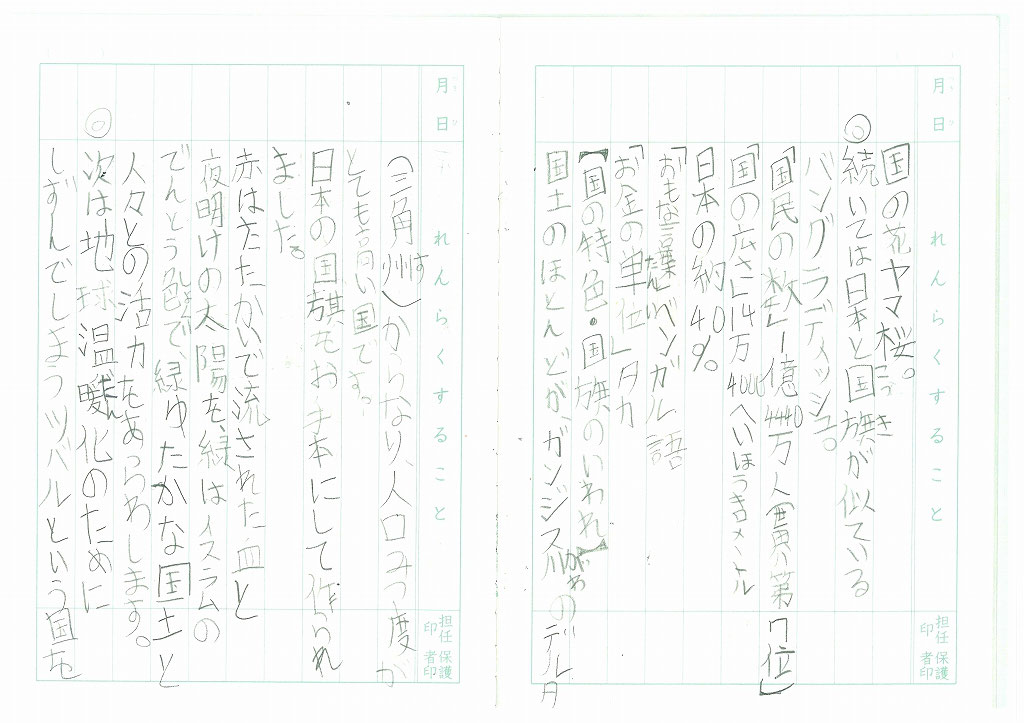 月日 れんらくすること 担任印 保護者印
国の花ヤマ桜。
◎続いては日本と国旗が似ている
こっき
バングラディッシュ。
「国民の数」1億4440万人(世界第7位)
「国の広さ」14万4000へいほうキロメートル
日本の約40%
「おもな言語」ベンガル語
「お金の単位」タカ
【国の特色・国旗のいわれ】
国土のほとんどが、ガンジス川のデルタ
がわ
月日 れんらくすること 担任印 保護者印
(三角州)からなり、人口みつ度が
す
とても高い国です。
日本の国旗をお手本にして作られ
ました。
赤はたたかいで流された血と
夜明けの太陽を、緑はイスラムの
でんとう色で、緑ゆたかな国土と
しょく
人々との活力をあらわします。
◎次は地球温暖化のために
だん
しずんでしまうツバルという国を